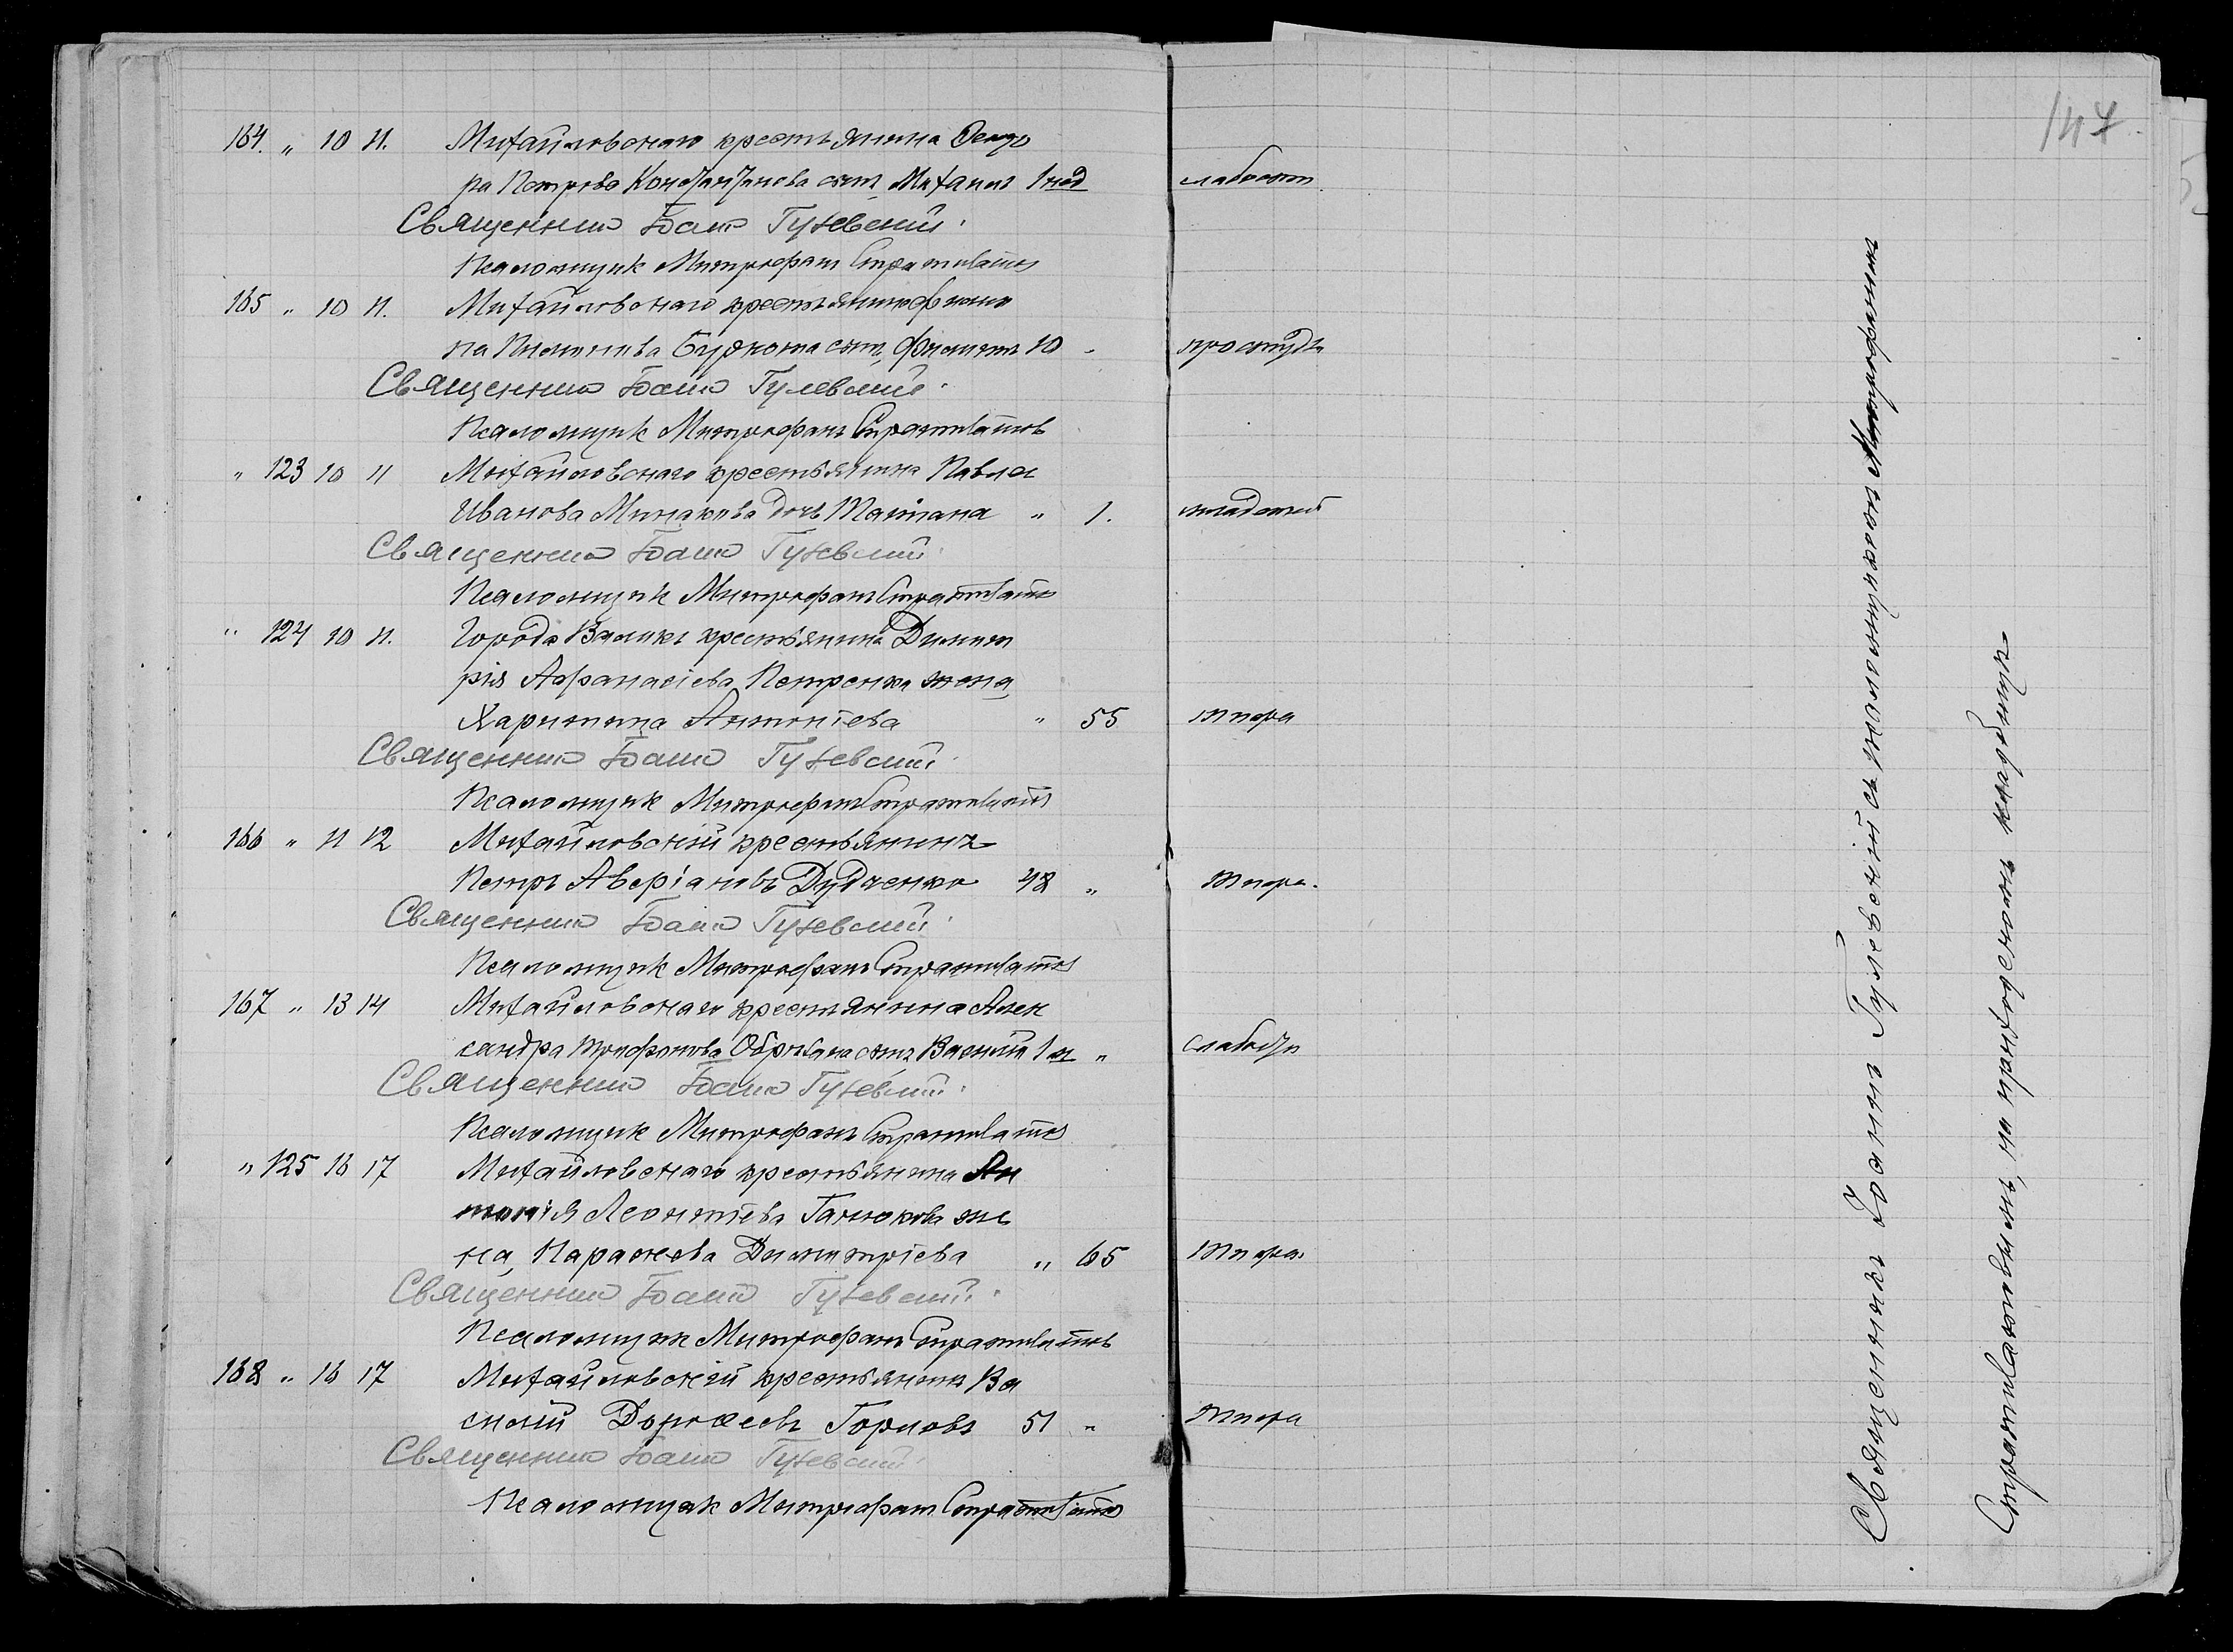 147
164. " 10 11. Михайловскаго крестьянина Ѳеодо
ра Петрова Константинова сынъ Михаилъ 1 нед слабости
Священникъ Іоаннъ Гулевскій.
Псаломщикъ Митрофанъ Стратилатовъ
165 " 10 11. Михайловскаго крестьянина
на сынъ Филиппъ 10 " простуда
Священникъ Іоаннъ Гулевскій.
Псаломщикъ Митрофанъ Стратилатовъ
" 123 10 11 Михайловскаго крестьянина Павла
Иванова Минакова дочь Татіана " 1. младенч
Священникъ Іоаннъ Гулевскій.
Псаломщикъ Митрофанъ Стратилатовъ
" 124 10 11. Города Валикъ крестьянина Димит
рія Аѳанасіева Петренка жена
Харитина Антоніева " 55 тифа
Священникъ Іоаннъ Гулевскій.
Псаломщикъ Митрофанъ Стратилатовъ
166 " 11 12 Михайловскій крестьянинъ
Петръ Аверіановъ Дудченко 48 " тифа.
Священникъ Іоаннъ Гулевскій.
Псаломщикъ Митрофанъ Стратилатовъ
167 " 13 14 Михайловскаго крестьянина Алек
сандра Трифонова сынъ Василій 1 м " слабости
Священникъ Іоаннъ Гулевскій.
Псаломщикъ Митрофанъ Стратилатовъ
" 125 16 17 Михайловскаго крестьянина Ан
тонія Леонтіева же
на, Параскева Димитріева " 65 тифа
Священникъ Іоаннъ Гулевскій.
Псаломщикъ Митрофанъ Стратилатовъ
168 " 16 17 Михайловскій крестьянинъ Ва
силій Дороѳеевъ Горловъ 51 " тифа
Священникъ Іоаннъ Гулевскій.
Псаломщикъ Митрофанъ Стратилатовъ
Священникъ Іоаннъ Гулевскій съ псаломщикомъ Митрофаномъ
Стратилатовымъ, на приходскомъ кладбищѣ